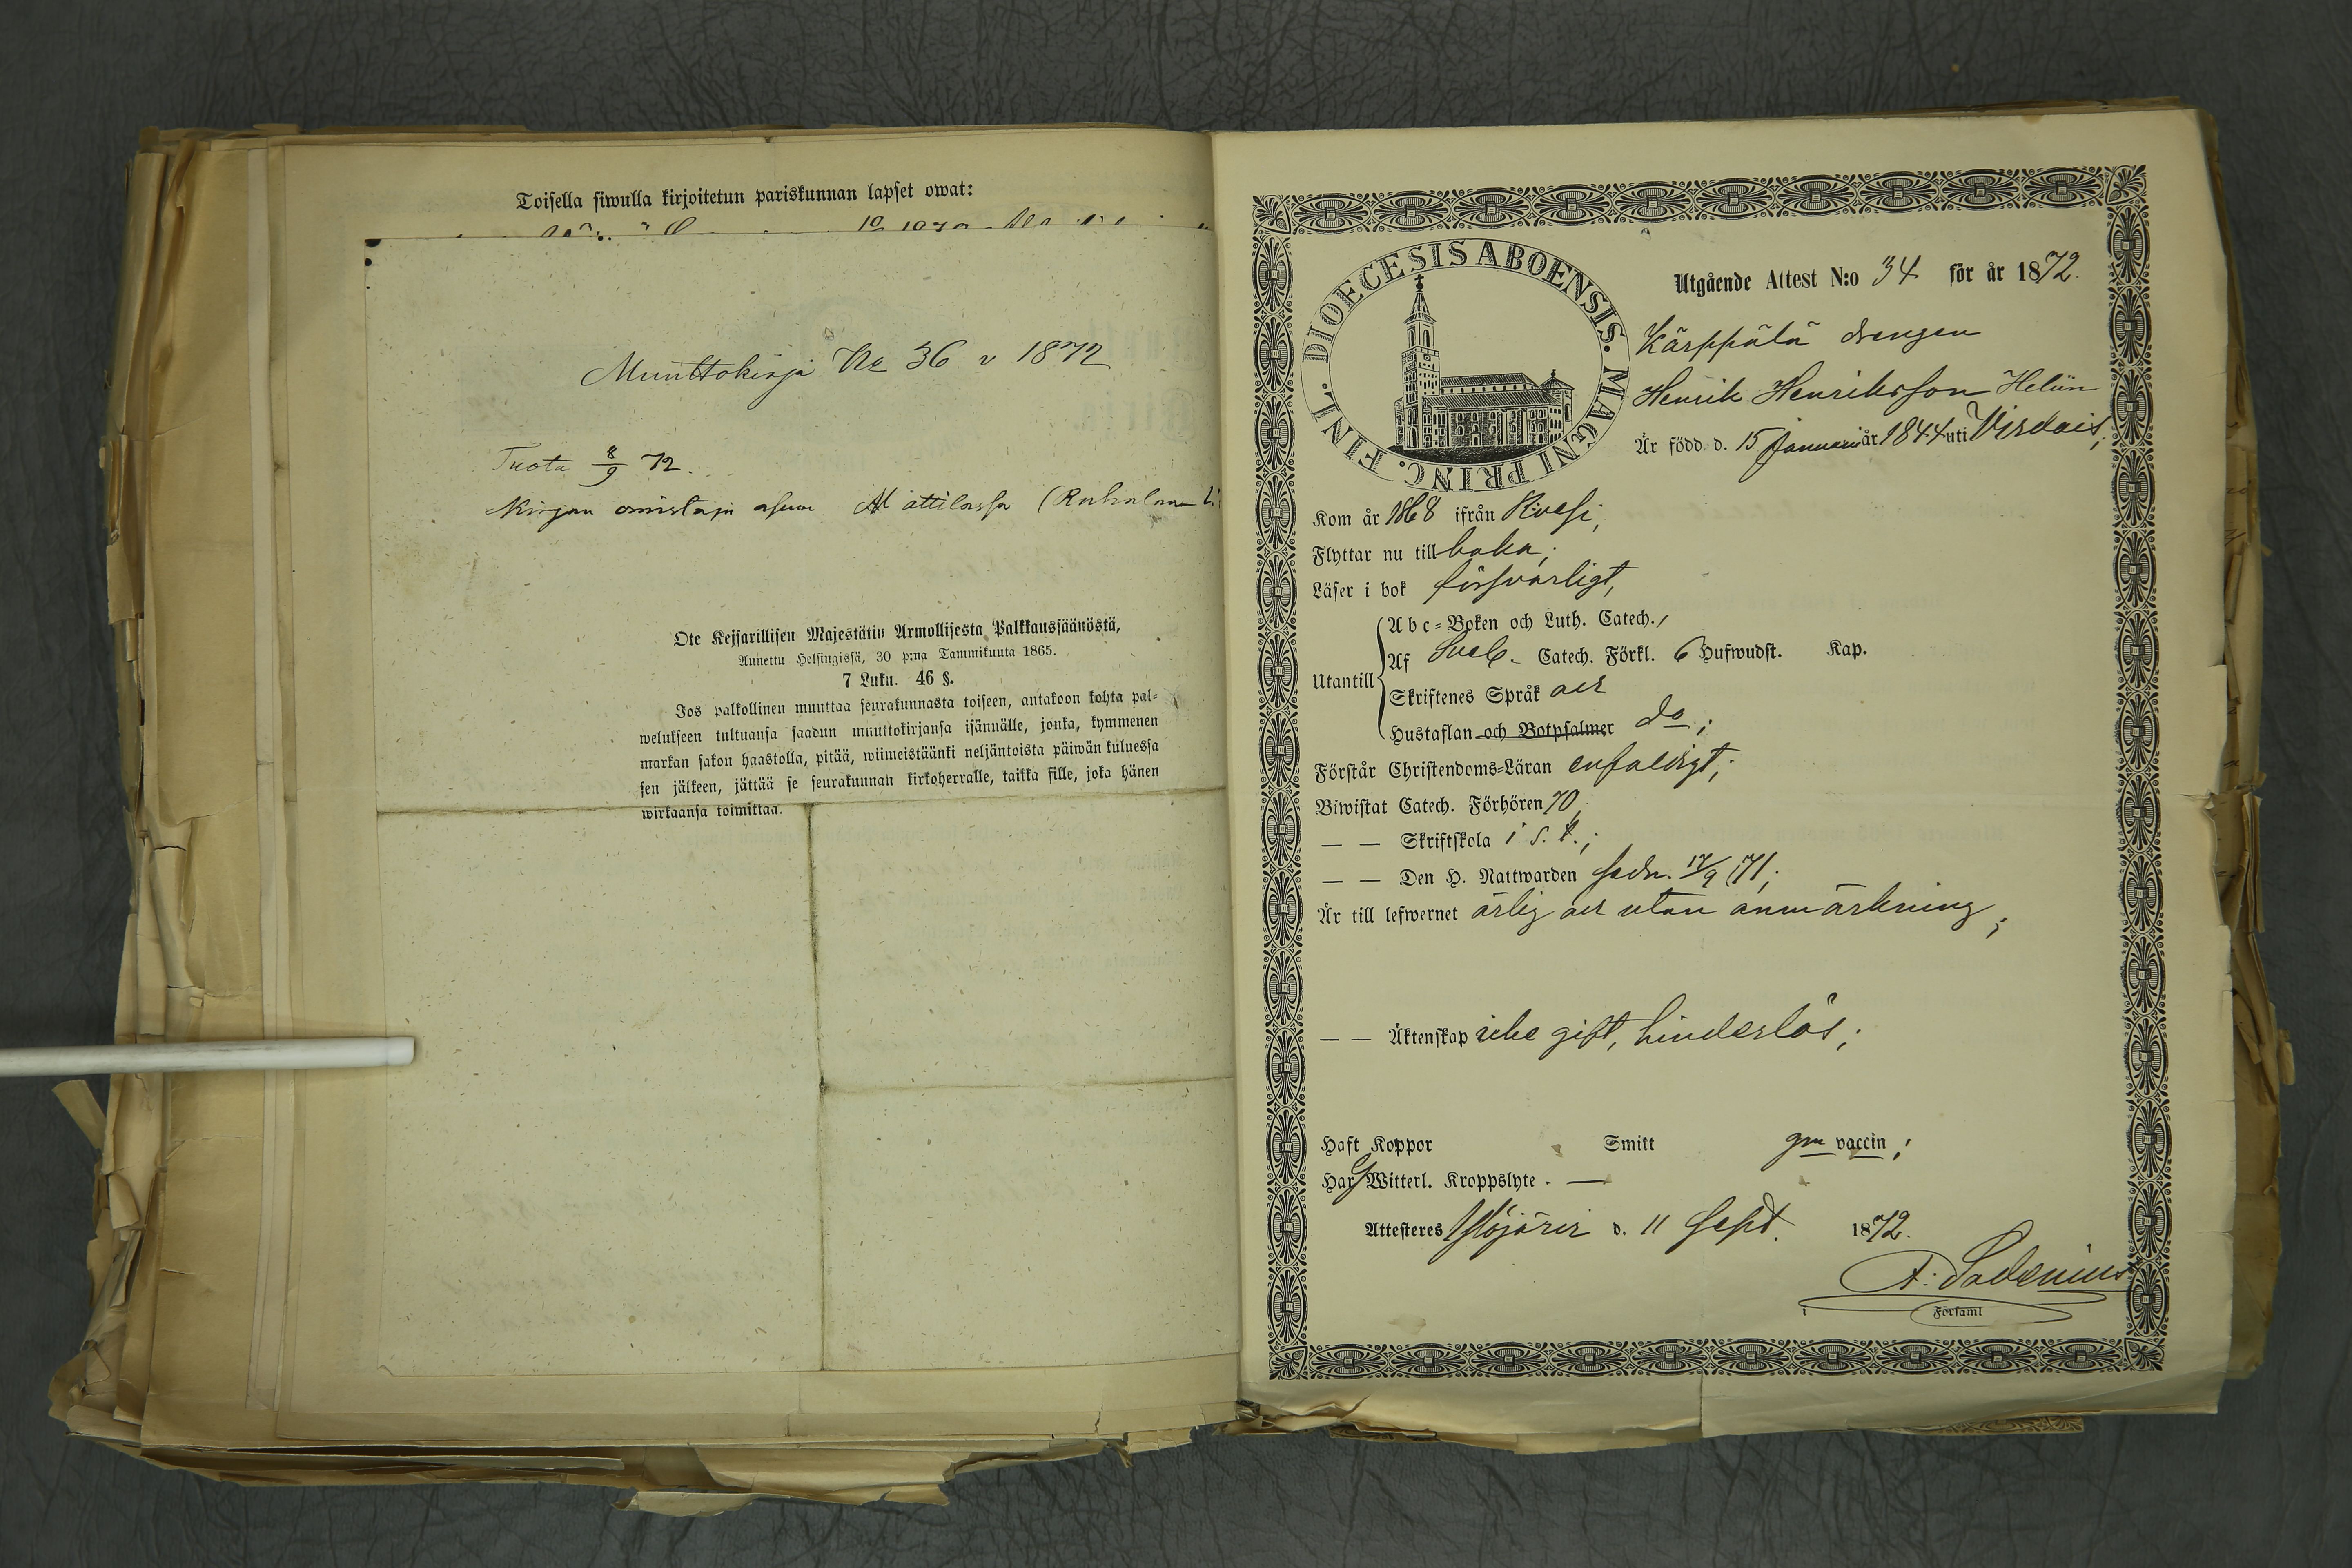 Toisella siwulla kirjoitetun pariskunnan lapset owat:
Muuttokirja No 36 v 1872
Tuota 8/9 72.
Kirjan omistaja asuu Mattilassa
Ote Keisarillisen Majestätin Armollisesta Palkkaussäänöstä,
Annettu Helsingissä, 30 p:na Tammikuuta 1865.
7 Luku. 46 §.
Jos palkollinen muuttaa seurakunnasta toiseen, antakoon kohta pal-
welukseen tultuansa saadun muuttokirjansa isännälle, jonka, kymmenen
markan sakon haastolla, pitää, wiimeistäänki neljäntoista päiwän kuluessa
sen jälkeen, jättää se seurakunnan kirkoherralle, taikka sille, joka hänen
wirkaansa toimittaa.
DIOECESIS ABOENSIS. MAGNI PRINC. FINL.
Utgående Attest N:o 34 för år 1872.
Kärppälä drengen
Henrik Henriksson Helin
Är född d. 15 Januari år 1844 uti Virdois,
Kom år 1868 ifrån
Flyttar nu till baka;
Läser i bok försvarligt,
Abc-Boken och Luth. Catech.,
Utantill Af Sveb. Catech. Förkl. 6 Hufwudst. Kap.
Skriftenes Språk och
Hustaflan och Botpsalmer do;
Förstår Christendoms-Läran enfaldigt;
Biwistat Catech. Förhören 70,
— — Skriftskola i s. t.;
— — Den H. Nattwarden sedn. 17/9 71;
Är till lefwernet ärlig och utan anmärkning;
— — Äktenskap icke gift, hinderlös;
Haft Koppor Smitt gm vaccin;
Har ej Witterl. Kroppslyte. —
Attesteres Ylöjärvi d. 11 Sept. 1872.
A. Sadenius
i Församl